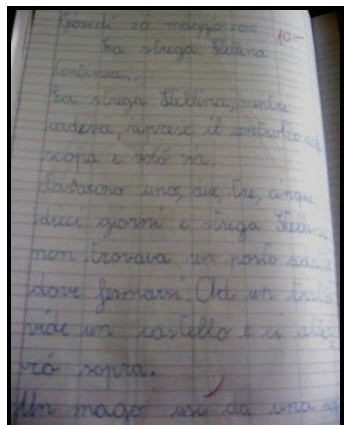 Giovedì 20 maggio 2010 10-
La strega Stellina
Continua..
La strega Stellina, mentre
cadeva, riprese il controllo
scopa e volò via.
Passarono uno, due, tre, cinque
dieci giorni e strega Stellina
non trovava un posto
dove fermarsi. Ad un tratto
vide un castello e ci atter
rò sopra.
Un mago uscì da una